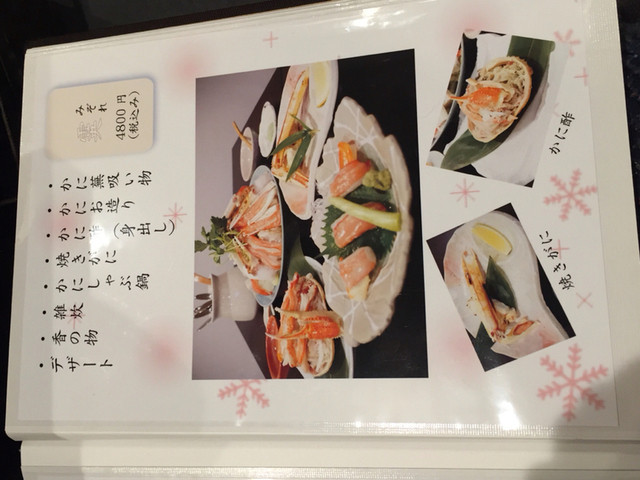 みぞれ
霙
4800円
(税込み)
・かに蕪吸い物
・かにお造り
・かに
(身出し)
・焼きがに
・かにしゃぶ鍋
・雑炊
・香の物
・デザート
かに酢
焼きがに